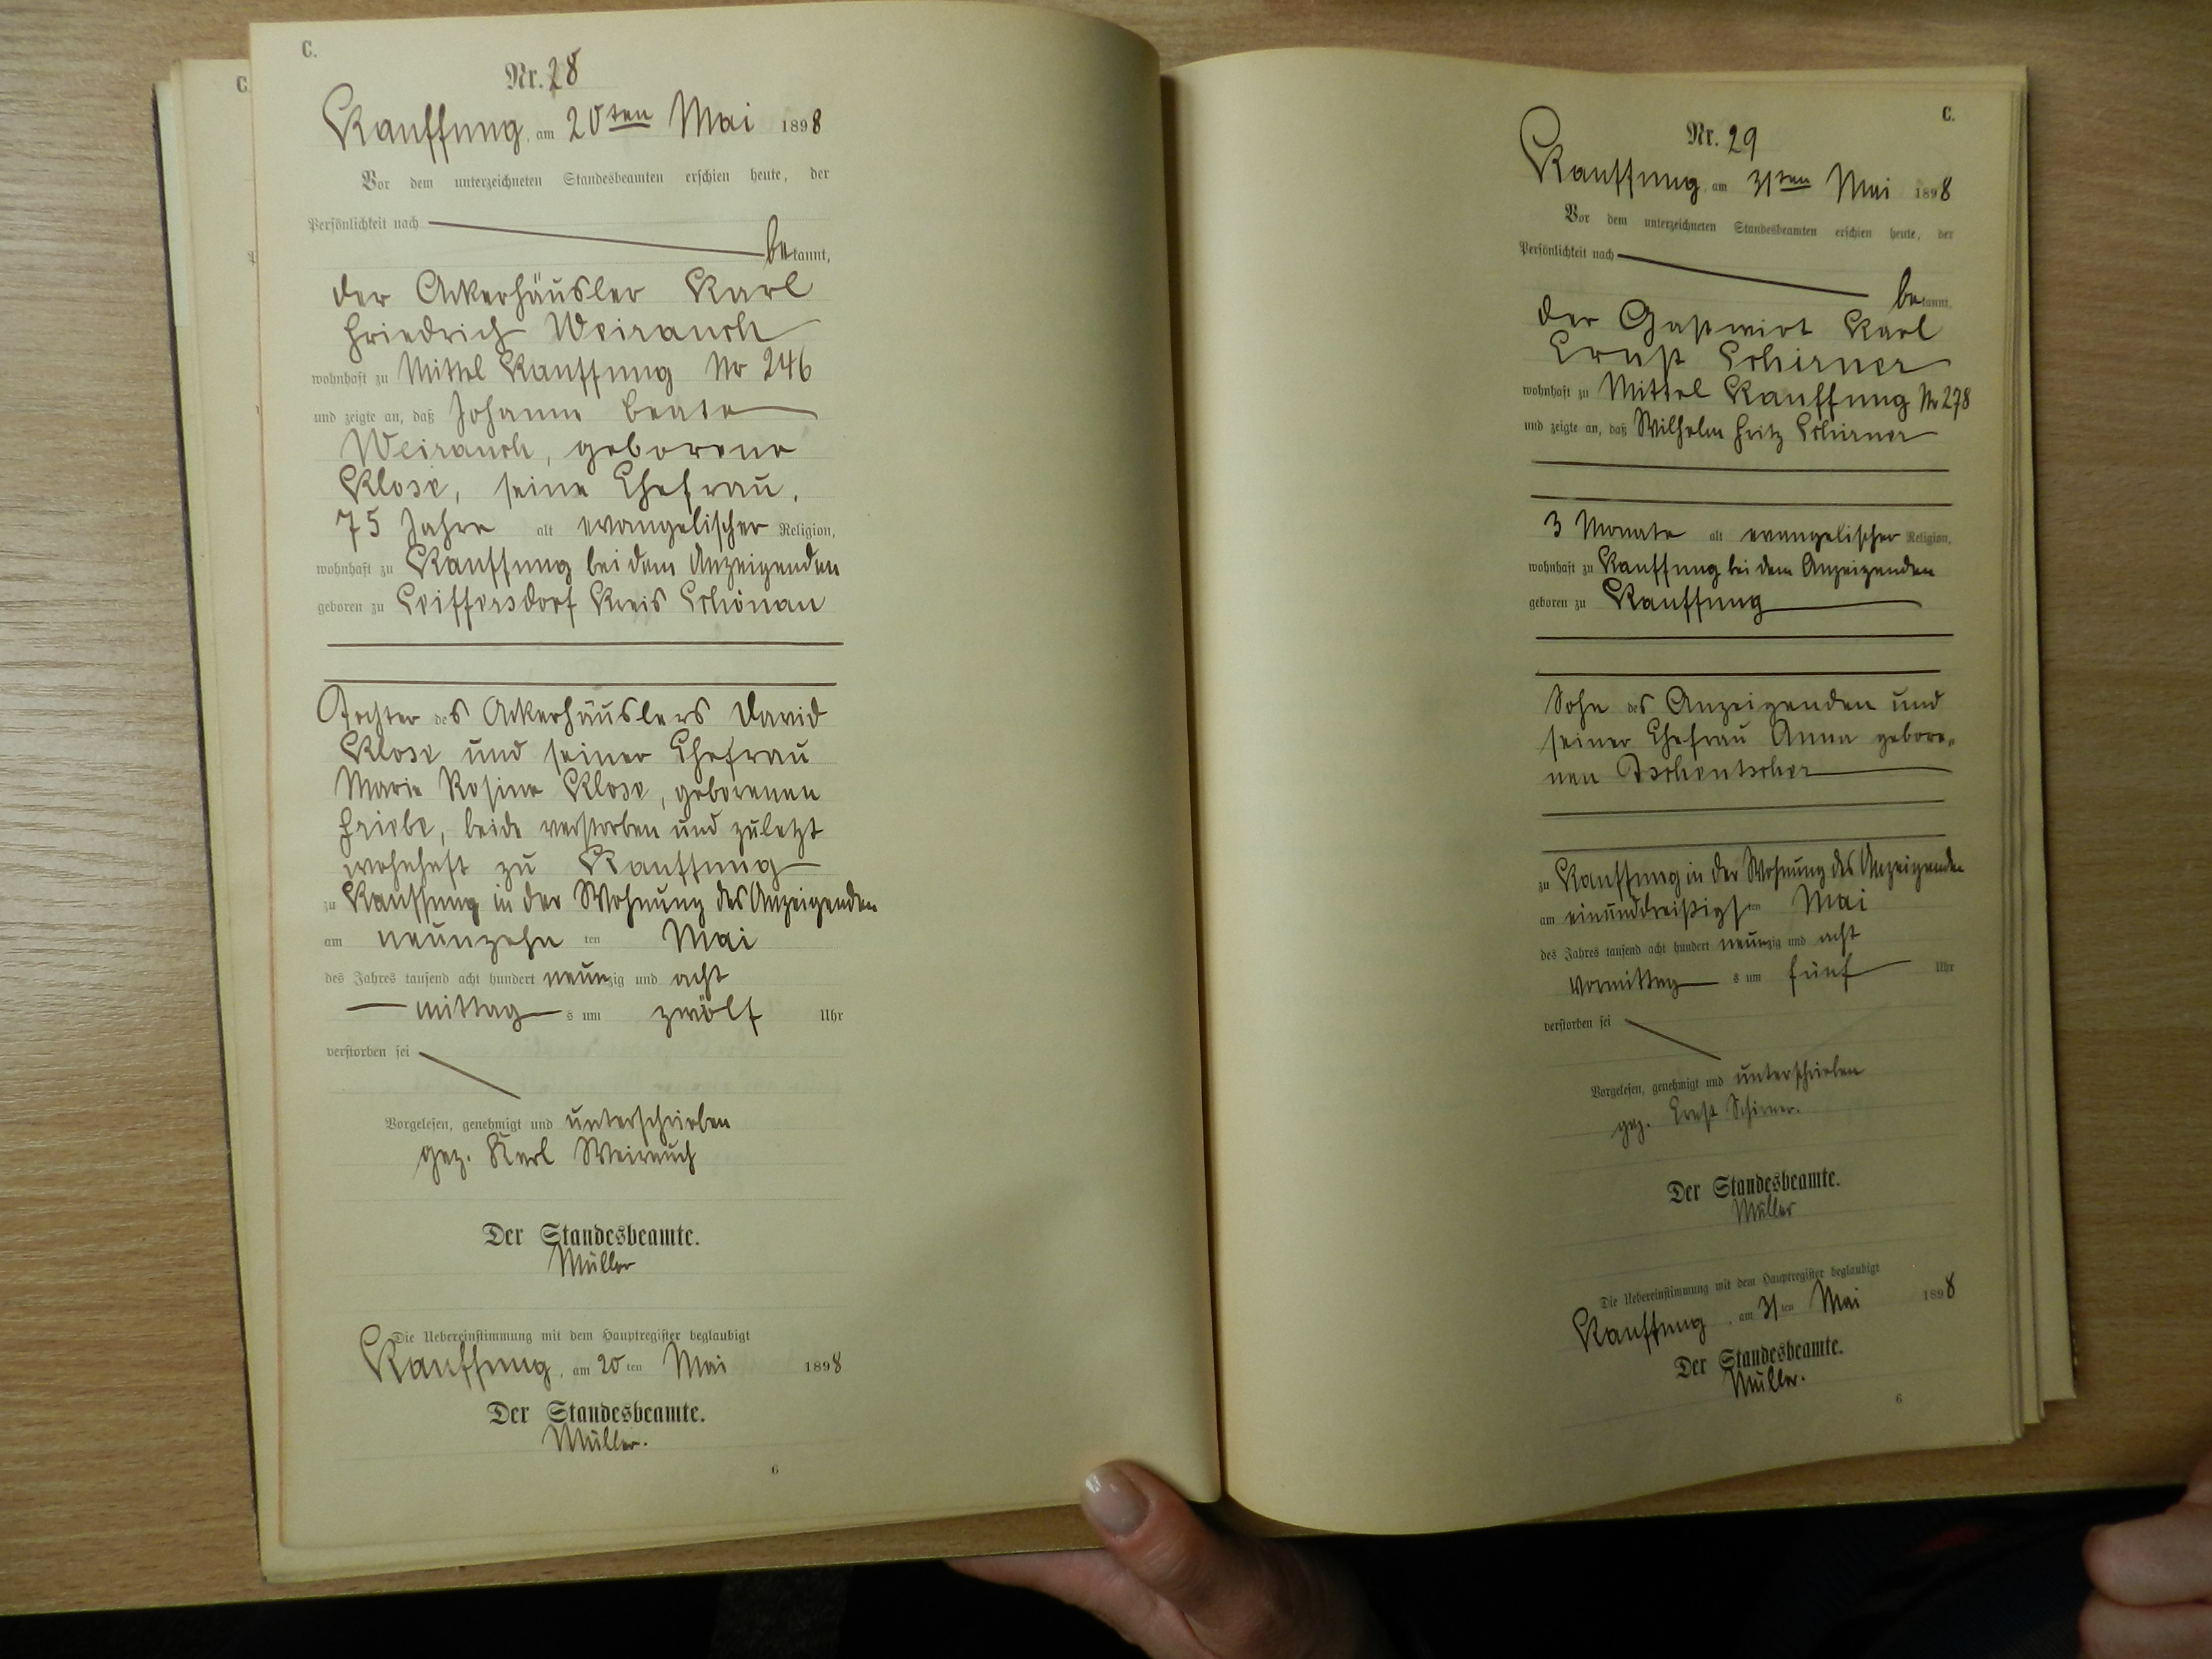 C.
Nr. 28
Kauffung, am 20ten Mai 1898
Vor dem unterzeichneten Standesbeamten erschien heute, der
Persönlichkeit nach
bekannt,
der Ackerhäusler Karl
Friedrich Weirauch
wohnhaft zu Mittel Kauffung No 246
und zeigte an, daß Johanne Beate
Weirauch, geborene
Klose, seine Ehefrau,
75 Jahre alt evangelischer Religion,
wohnhaft zu Kauffung bei dem Anzeigenden
geboren zu Seiffersdorf Kreis Schönau
Tochter des Ackerhäuslers David
Klose und seiner Ehefrau
Marie Rosine Klose, geborenen
Friebe, beide verstorben und zuletzt
wohnhaft zu Kauffung
zu Kauffung in der Wohnung des Anzeigenden
am neunzehnten Mai
des Jahres tausend acht hundert neunzig und acht
mittags um zwölf Uhr
verstorben sei
Vorgelesen, genehmigt und unterschrieben
gez. Karl Weirauch
Der Standesbeamte.
Müller
Die Uebereinstimmung mit dem Hauptregister beglaubigt
Kauffung, am 20ten Mai 1898
Der Standesbeamte.
Müller.
6
C.
Nr. 29
Kauffung, am 31ten Mai 1898
Vor dem unterzeichneten Standesbeamten erschien heute, der
Persönlichkeit nach
bekannt,
der Gastwirt Karl
Ernst Schirner
wohnhaft zu Mittel Kauffung No 278
und zeigte an, daß Wilhelm Fritz Schirner
3 Monate alt evangelischer Religion,
wohnhaft zu Kauffung bei dem Anzeigenden
geboren zu Kauffung
Sohn des Anzeigenden und
seiner Ehefrau Anna gebore-
nen Tschentscher
zu Kauffung in der Wohnung des Anzeigenden
am einunddreißigsten Mai
des Jahres tausend acht hundert neunzig und acht
Vormittags um fünf Uhr
verstorben sei
Vorgelesen, genehmigt und unterschrieben
gez. Ernst Schirner.
Der Standesbeamte.
Müller
Die Uebereinstimmung mit dem Hauptregister beglaubigt
Kauffung, am 31ten Mai 1898
Der Standesbeamte.
Müller.
6